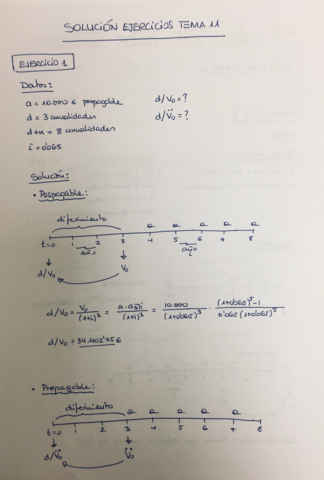 SOLUCIÓN EJERCICIOS TEMA 11
EJERCICIO 1
Datos:
a = 10.000 € prepagable d/V₀ = ?
d = 3 anualidades d/V̈₀ = ?
d+n = 8 anualidades
i = 0'065
Solución:
• Pospagable:
diferimiento a a a a a
t=0 1 2 3 4 5 6 7 8
año año
d/V₀ V₀
d/V₀ = V₀/(1+i)³ = a · a5⌉i/(1+i)³ = 10.000/(1+0'065)³ · (1+0'065)⁵ - 1/0'065(1+0'065)⁵
d/V₀ = 34.402'75 €
• Prepagable:
diferimiento a a a a a
t=0 1 2 3 4 5 6 7 8
d/V̈₀ V̈₀